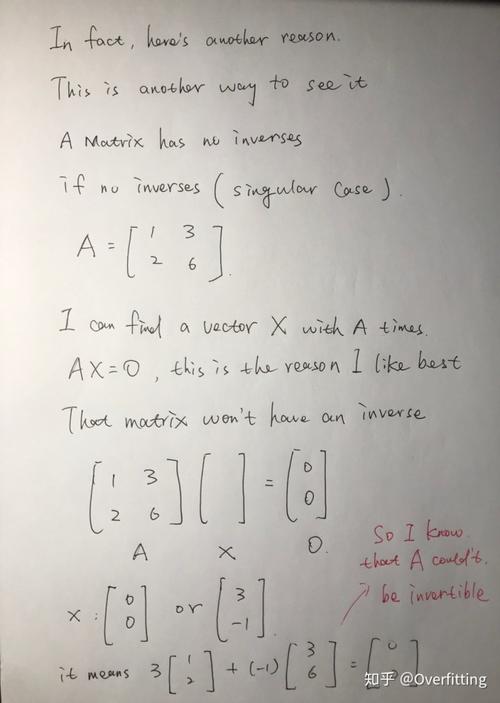 In fact, here's another reason.
This is another way to see it
A Matrix has no inverses
if no inverses (singular case).
A = [1 3
2 6].
I can find a vector X with A times.
AX=0, this is the reason I like best
That matrix won't have an inverse
[1 3
2 6] [ ] = [0
0]
A X 0.
So I know
that A couldn't.
be invertible
X: [0
0] or [3
-1].
it means 3[1
2] + (-1)[3
6] = [0
知乎 @Overfitting